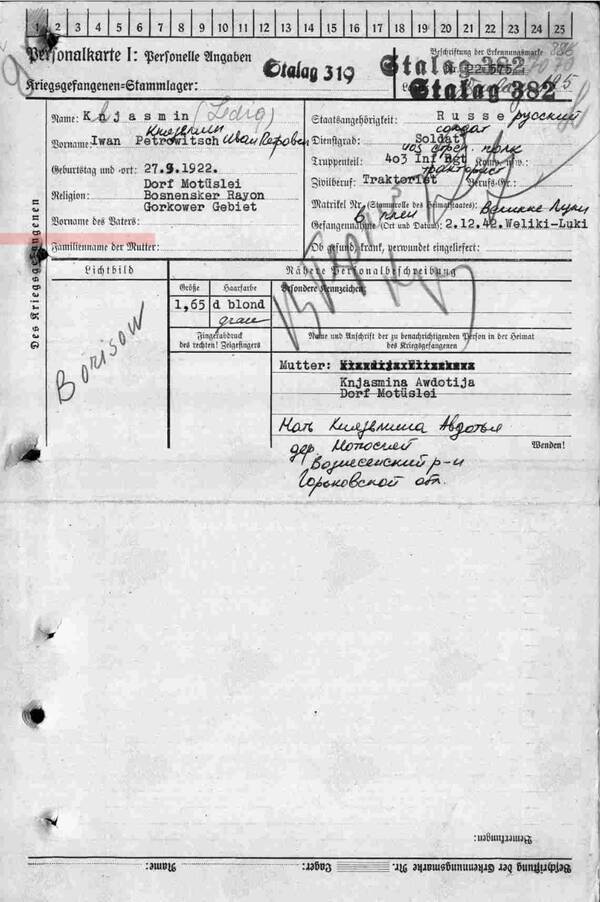 1 2 3 4 5 6 7 8 9 10 11 12 13 14 15 16 17 18 19 20 21 22 23 24 25
Personalkarte I: Personelle Angaben
Beschriftung der Erkennungsmarke
Kriegsgefangenen-Stammlager: Stalag 319
Stalag 382
Nr. 22575
Stalag 382
Des Kriegsgefangenen
Name: Knjasmin
Vorname: Iwan Petrowitsch Иван Петрович
Geburtstag und -ort: 27.9.1922.
Dorf Motüslei
Religion: Bosnensker Rayon
Gorkower Gebiet
Vorname des Vaters:
Familienname der Mutter:
Staatsangehörigkeit: Russe русский
солдат
Dienstgrad: Soldat
403 стрел. полк
Truppenteil: 403 Inf Rgt Komp. usw.:
тракторист
Zivilberuf: Traktorist Berufs-Gr.:
Matrikel Nr. (Stammrolle des Heimatstaates):
в плен Великие Луки
Gefangennahme (Ort und Datum): 2.12.42. Weliki-Luki
Ob gesund, krank, verwundet eingeliefert:
Lichtbild
Borisow
Nähere Personalbeschreibung
Größe Haarfarbe Besondere Kennzeichen:
1,65 d blond
grau
Fingerabdruck
des rechten! Zeigefingers
Name und Anschrift der zu benachrichtigenden Person in der Heimat
des Kriegsgefangenen
Mutter:
Knjasmina Awdotija
Dorf Motüslei
Мать Князьмина Авдотья
дер. Мотослей
Вознесенский р-н
Горьковской обл.
Wenden!
Bemerkungen:
Beschriftung der Erkennungsmarke Nr. Lager: Name: